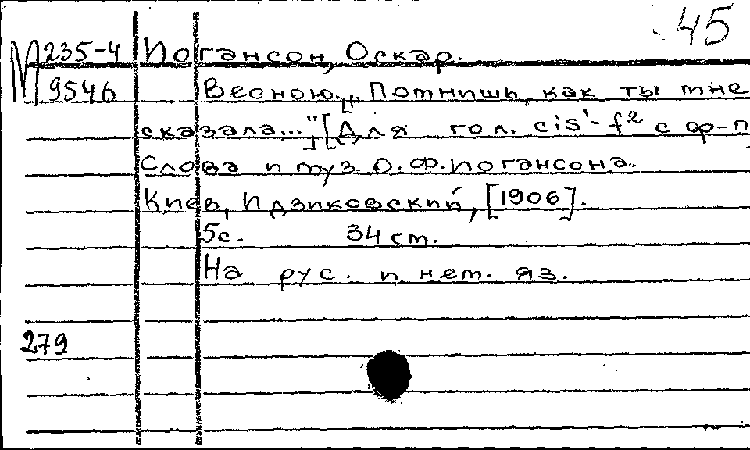 45
М 235-4 Иогансон, Оскар.
9546 Весною. „Помнишь, как ты мне
сказала..." [Для гол. cis¹-f² с ф-п]
Слова и муз О.Ф.Иогансона.
Киев, Идзиковский, [1906].
5с. 34 см.
На рус. и нем. яз.
279